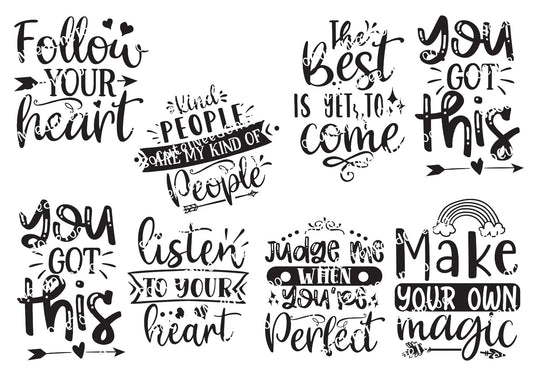 Follow
YOUR
heart
Kind
PEOPLE
ARE MY KIND OF
People
The
Best
IS YET TO
come
you
GOT
this
you
GOT
this
listen
TO YOUR
heart
Judge me
WHEN
you're
Perfect
Make
YOUR OWN
magic